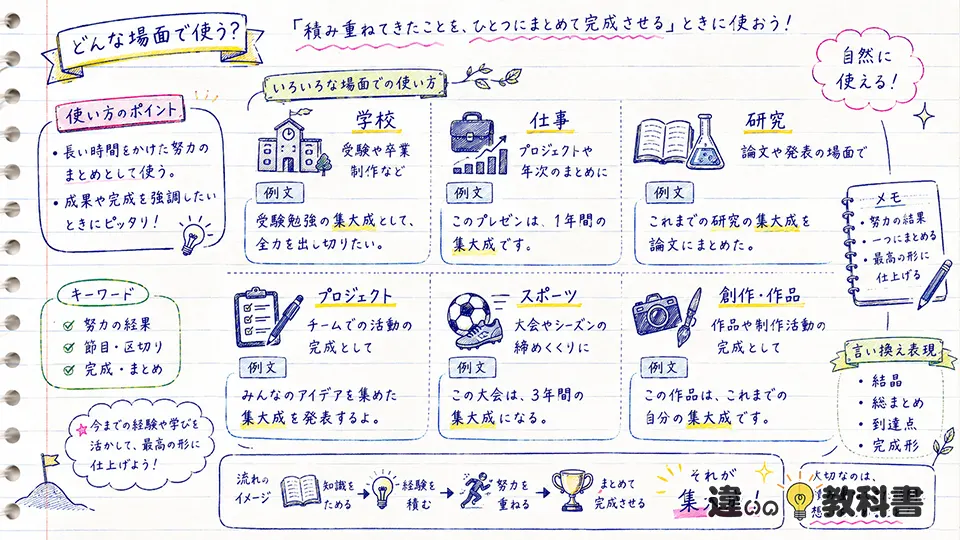 どんな場面で使う?
「積み重ねてきたことを、ひとつにまとめて完成させる」ときに使おう!
自然に
使える!
使い方のポイント
・長い時間をかけた努力の
まとめとして使う。
・成果や完成を強調したい
ときにピッタリ!
いろいろな場面での使い方
学校
受験や卒業
制作など
例文
受験勉強の集大成として、
全力を出し切りたい。
仕事
プロジェクトや
年次のまとめに
例文
このプレゼンは、1年間の
集大成です。
研究
論文や発表の場面で
例文
これまでの研究の集大成を
論文にまとめた。
メモ
・努力の結果
・一つにまとめる
・最高の形に
仕上げる
キーワード
努力の結果
節目・区切り
完成・まとめ
プロジェクト
チームでの活動の
完成として
例文
みんなのアイデアを集めた
集大成を発表するよ。
スポーツ
大会やシーズンの
締めくくりに
例文
この大会は、3年間の
集大成になる。
創作・作品
作品や制作活動の
完成として
例文
この作品は、これまでの
自分の集大成です。
言い換え表現
・結晶
・総まとめ
・到達点
・完成形
今までの経験や学びを
活かして、最高の形に
仕上げよう!
流れの
イメージ
知識を
ためる
経験を
積む
努力を
重ねる
まとめて
完成させる
それが
集
!
大切なのは、
違いの教科書